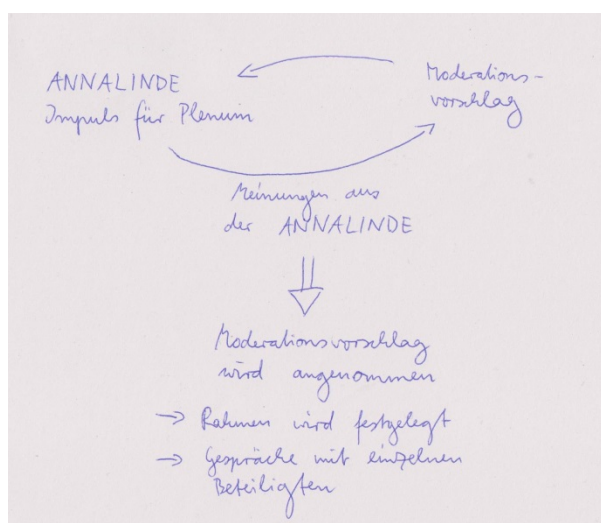 ANNALINDE
Impuls für Plenum
Moderations-
vorschlag
Meinungen aus
der ANNALINDE
Moderationsvorschlag
wird angenommen
→ Rahmen wird festgelegt
→ Gespräche mit einzelnen
Beteiligten